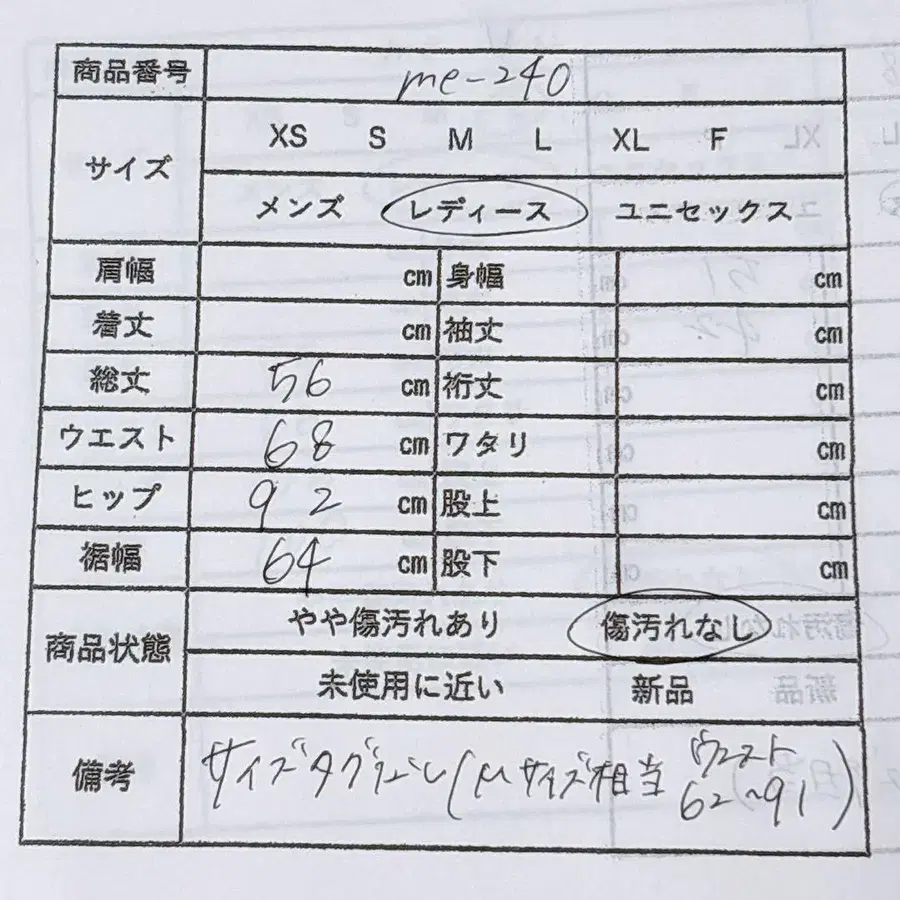 商品番号 me-240
サイズ XS S M L XL F
メンズ レディース ユニセックス
肩幅 cm 身幅 cm
着丈 cm 袖丈 cm
総丈 56 cm 裄丈 cm
ウエスト 68 cm ワタリ cm
ヒップ 92 cm 股上 cm
裾幅 64 cm 股下 cm
商品状態 やや傷汚れあり 傷汚れなし
未使用に近い 新品
備考 サイズタグなし(Mサイズ相当 ウエスト
62~91)